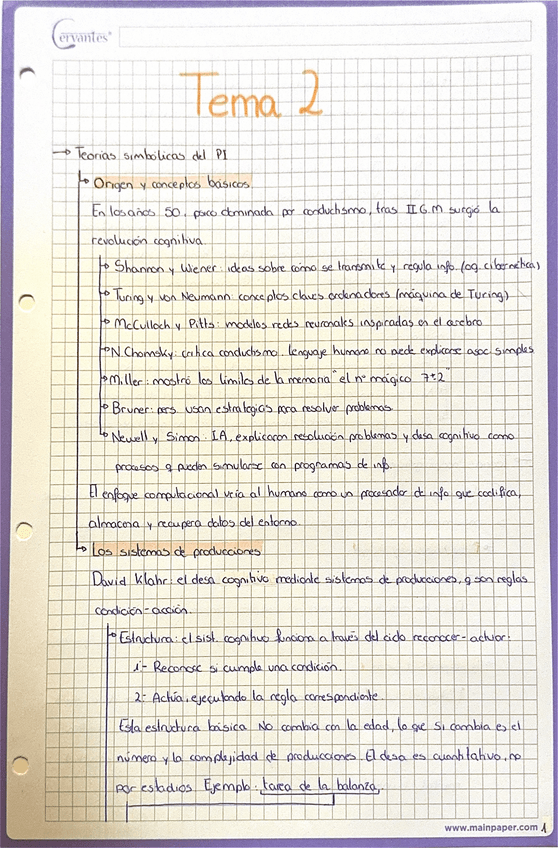 Cervantes
Tema 2
→ Teorías simbólicas del PI
↳ Origen y conceptos básicos
En los años 50, psico dominada por conductismo, tras II G.M surgió la
revolución cognitiva.
Shannon y Wiener: ideas sobre cómo se transmite y regula info. (og. cibernética)
Turing y von Neumann: conceptos claves ordenadores (máquina de Turing)
McCulloch y Pitts: modelos redes neuronales inspiradas en el cerebro
N.Chomsky: crítica conductismo. lenguaje humano no puede explicarse asoc. simples
Miller: mostró los límites de la memoria "el nº mágico 7±2"
Bruner: pers. usan estrategias para resolver problemas.
Newell y Simon: IA, explicaron resolución problemas y desa cognitivo como
procesos q pueden simularse con programas de inf.
El enfoque computacional vería al humano como un procesador de info que codifica,
almacena y recupera datos del entorno.
↳ Los sistemas de producciones
David Klahr: el desa cognitivo mediante sistemas de producciones, q son reglas
condición-acción.
Estructura: el sist. cognitivo funciona a través del ciclo reconocer-actuar:
1- Reconoce si cumple una condición.
2- Actúa, ejecutando la regla correspondiente.
Esta estructura básica NO cambia con la edad, lo que sí cambia es el
número y la complejidad de producciones. El desa es cuantitativo, no
por estadios. Ejemplo: tarea de la balanza.
www.mainpaper.com 1